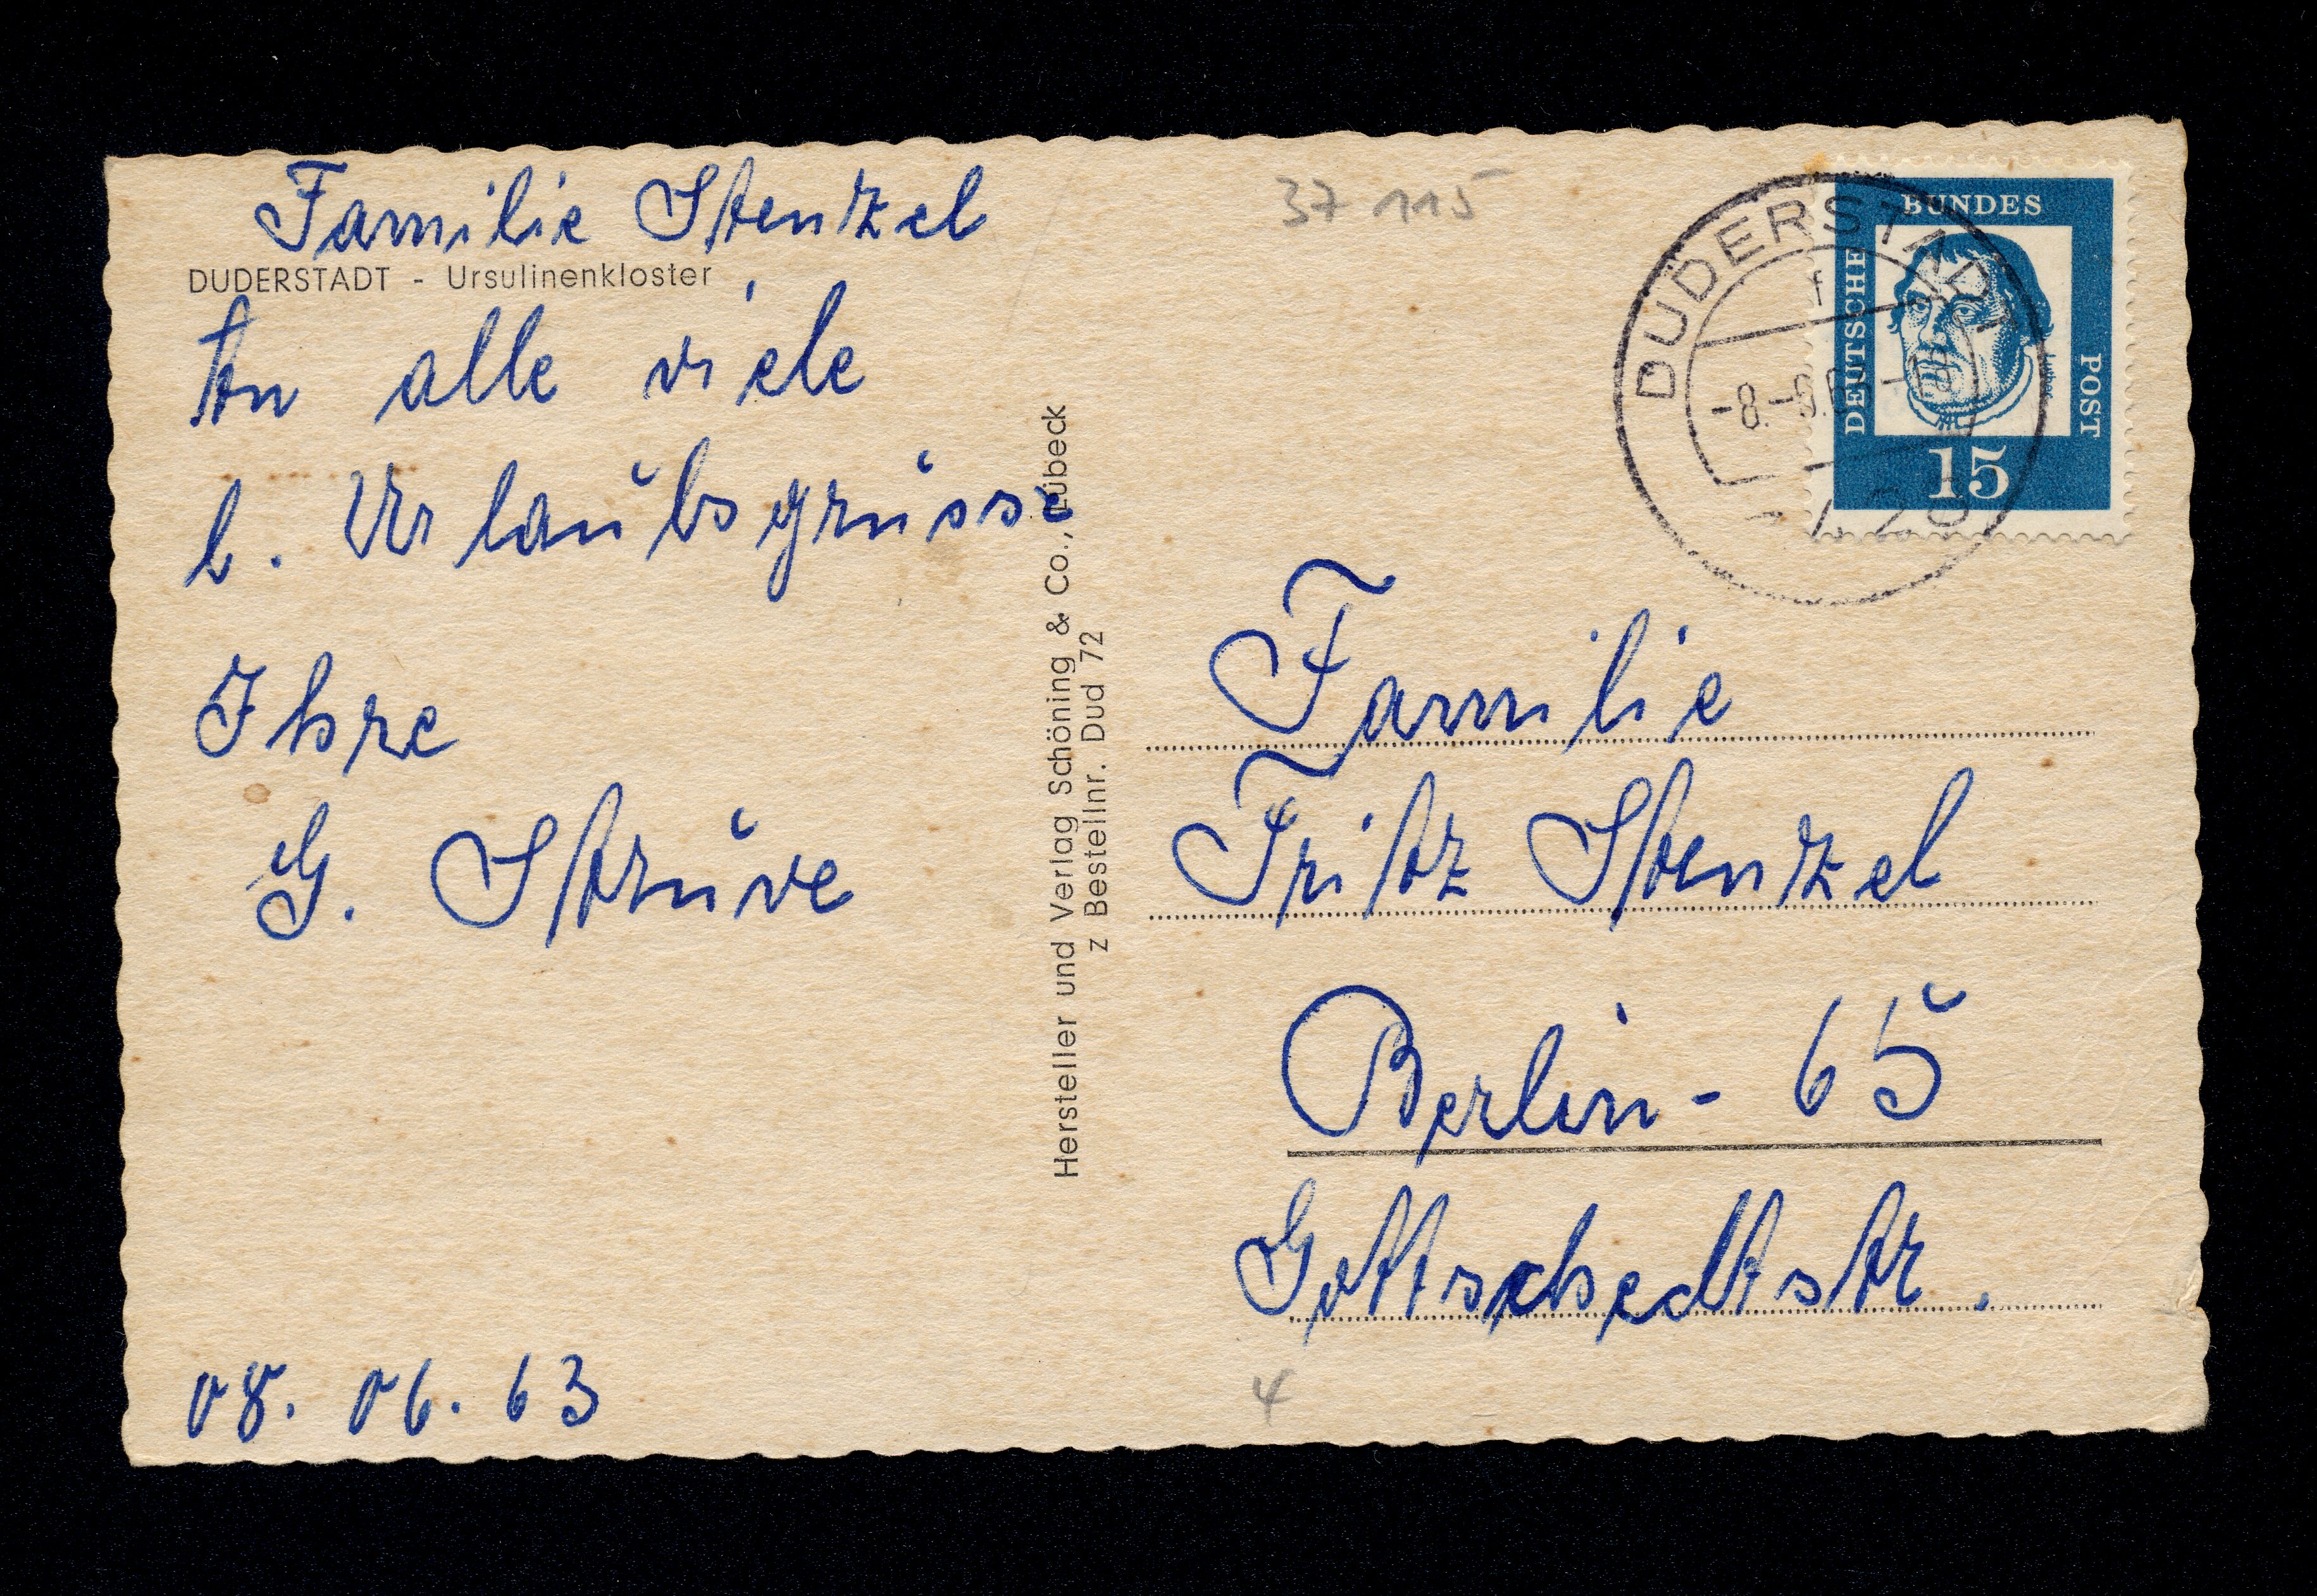 Familie Stenzel
DUDERSTADT - Ursulinenkloster
An alle viele
l. Urlaubsgrüsse
Ihre
G. Strüve
08. 06. 63
Hersteller und Verlag Schöning & Co., Lübeck
z Bestellnr. Dud 72
37 115
DUDERSTADT
f
-8.-
DEUTSCHE
BUNDES
POST
Luther
15
Familie
Fritz Stenzel
Berlin - 65
Gottschedtstr.
4